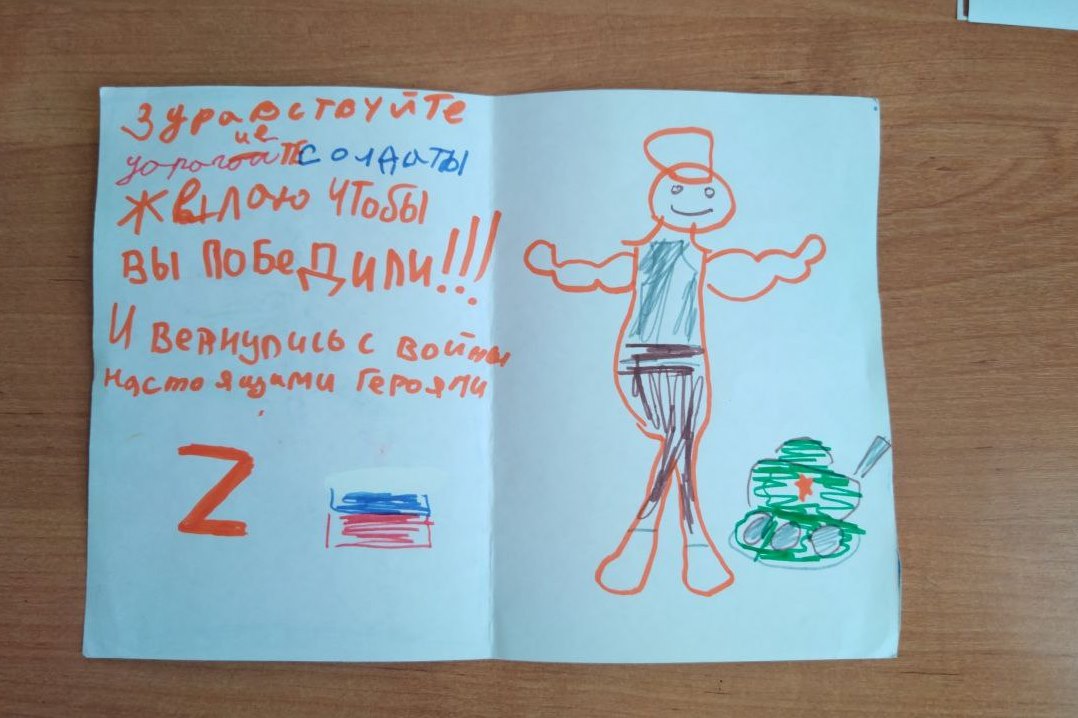 Здравствуйте
дорогие солдаты
Желаю чтобы
вы победили!!!
И вернулись с войны
настоящими героями
Z